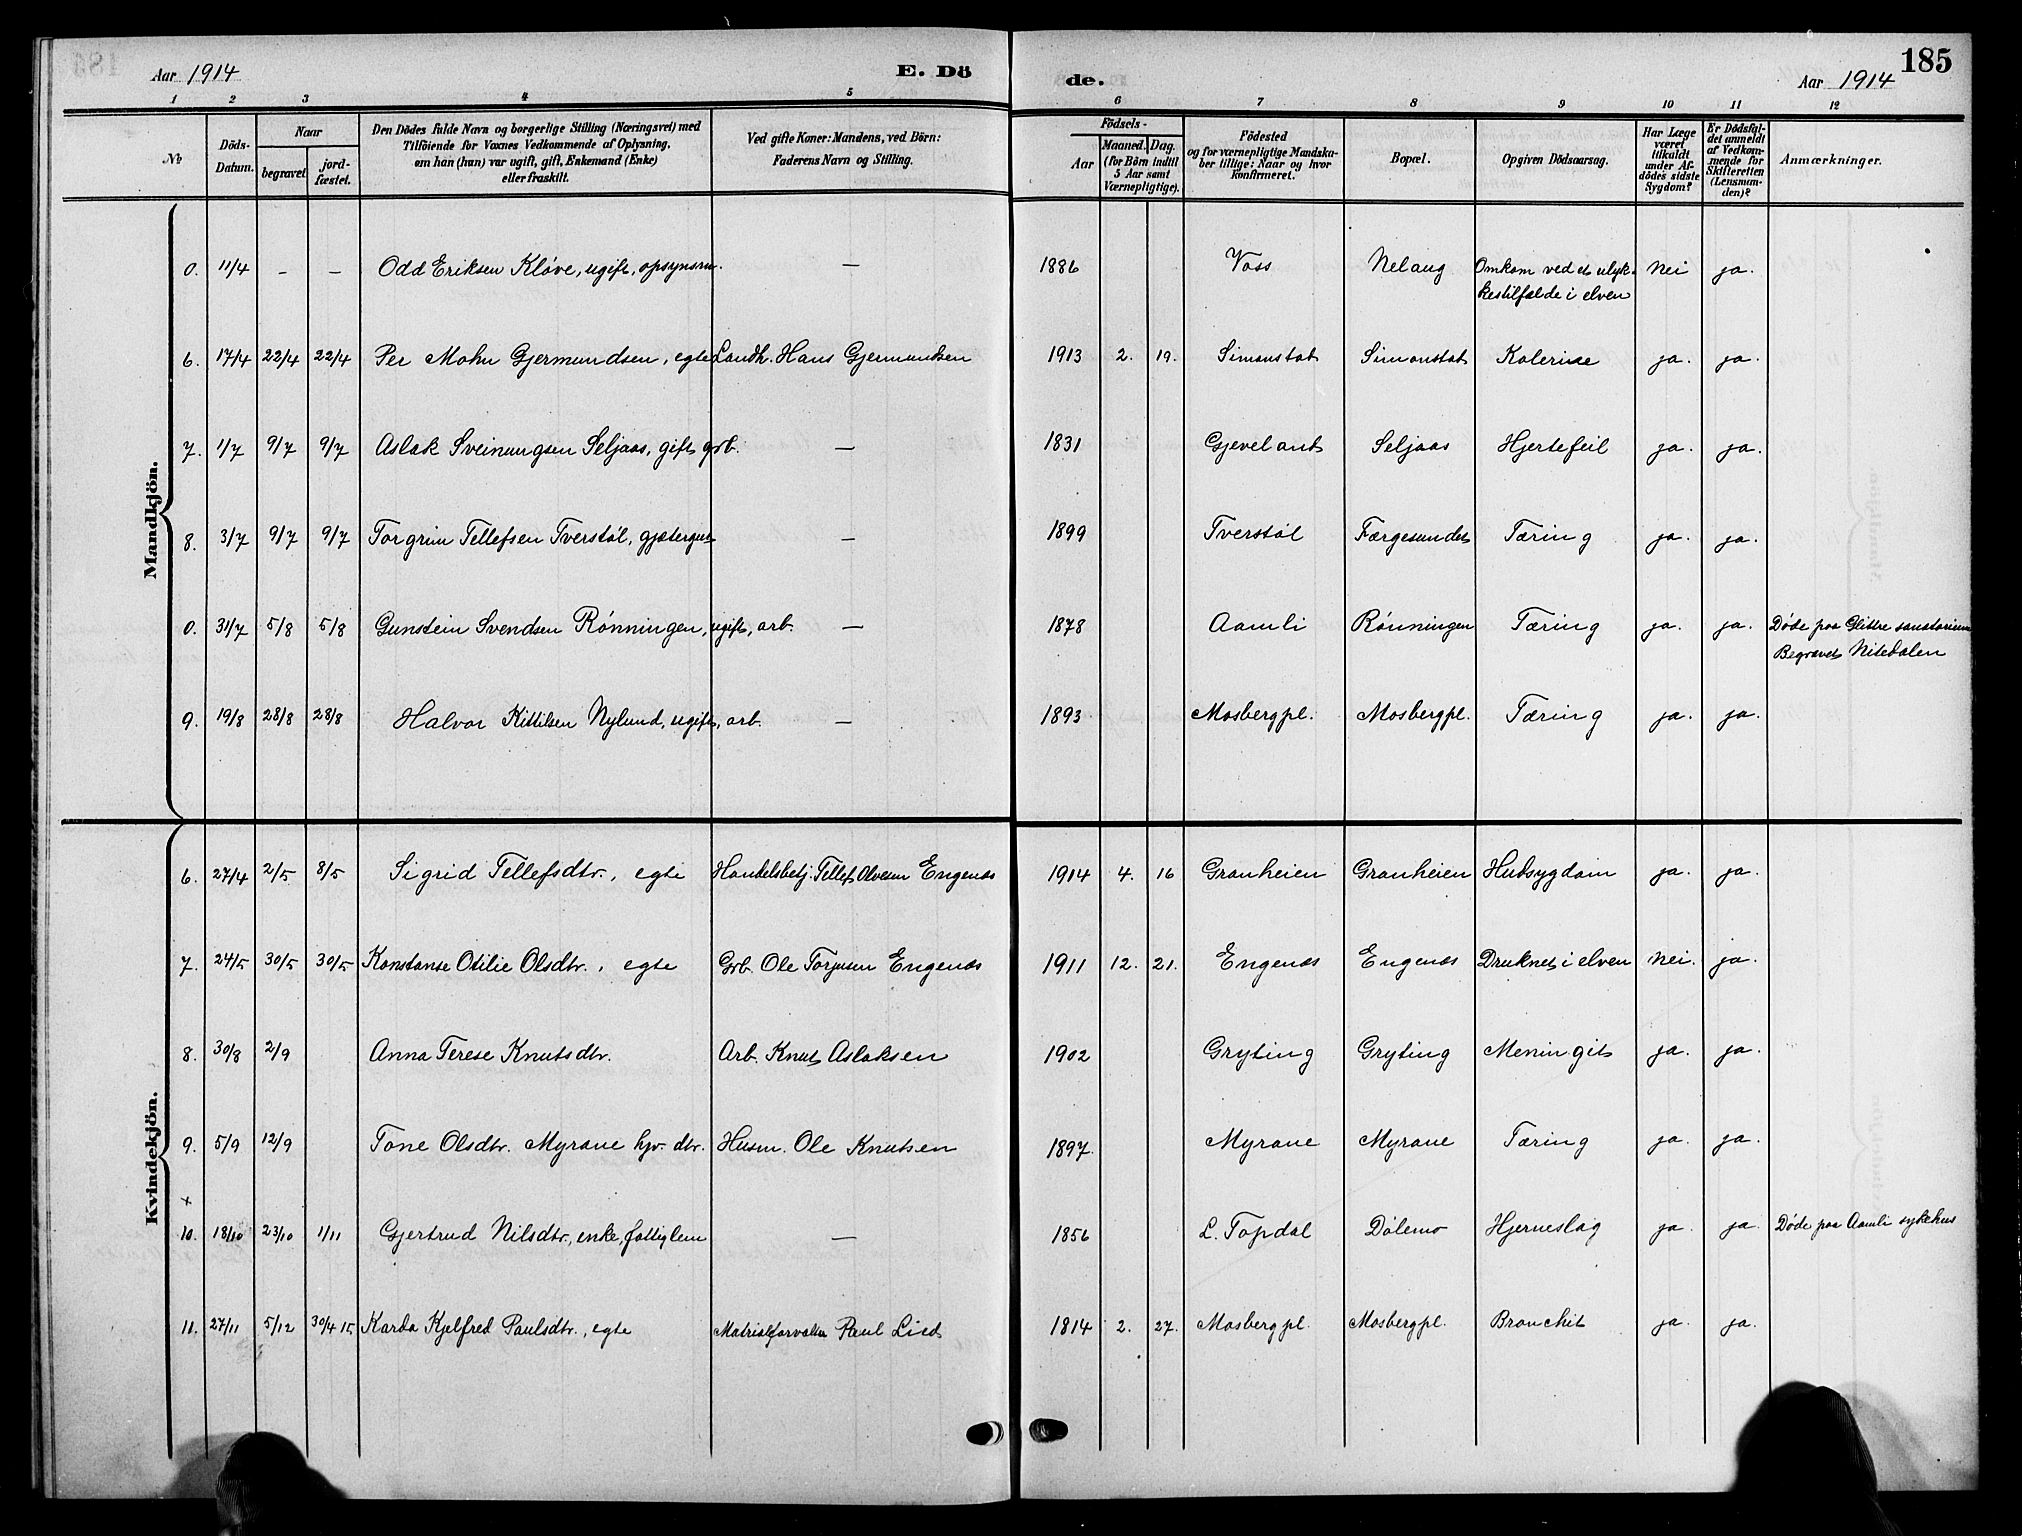 Aar 1914 E. Dö de. Aar 1914 185
1 2 3 4 5 6 7 8 9 10 11 12
No
Döds-Datum.
Naar
begravet
jord-fæstet.
Den Dödes fulde Navn og borgerlige Stilling (Næringsvei) med
Tilföiende for Voxnes Vedkommende af Oplysning,
om han (hun) var ugift, gift, Enkemand (Enke)
eller fraskilt.
Ved gifte Koner: Mandens, ved Börn:
Faderens Navn og Stilling.
Födsels-
Aar
Maaned. Dag.
(for Börn indtil
5 Aar samt
Værnepligtige).
Födested
og for værnepligtige Mandska-
ber tillige: Naar og hvor
konfirmeret.
Bopæl.
Opgiven Dödsaarsag.
Har Læge
været
tilkaldt
under Af-
dödes sidste
Sygdom?
Er Dödsfal-
det anmeldt
af Vedkom-
mende for
Skifteretten
(Lensman-
den)?
Anmærkninger.
Mandkjön.
0. 11/4 – – Odd Eriksen Kløve, ugift, opsynsm. — 1886 Voss Nelaug Omkom ved et ulyk- nei ja.
kestilfælde i elven
6. 17/4 22/4 22/4 Per Mohn Gjermundsen, egte Landh. Hans Gjermundsen 1913 2. 19. Simonstat Simonstat Kolerine ja. ja.
7. 1/7 9/7 9/7 Aslak Sveinungsen Seljaas, gift grb. — 1831 Gjeveland Seljaas Hjertefeil ja. ja.
8. 3/7 9/7 9/7 Torgrim Tellefsen Tverstøl, gjætergut — 1899 Tverstøl Færgesundet Tæring ja. ja.
0. 31/7 5/8 5/8 Gunstein Svendsen Rønningen, ugift, arb. — 1878 Aamli Rønningen Tæring ja. ja. Døde paa Glittre sanatorium
Begravet Nitedalen
9. 19/8 28/8 28/8 Halvor Kittilsen Nylund, ugift, arb. — 1893 Mosbergpl. Mosbergpl. Tæring ja. ja.
Kvindekjön.
6. 27/4 2/5 8/5 Sigrid Tellefsdtr., egte Handelsbetj. Tellef Olvesen Engenæs 1914 4. 16 Granheien Granheien Hudsygdom ja. ja.
7. 24/5 30/5 30/5 Konstanse Otilie Olsdtr., egte Grb. Ole Torjusen Engenæs 1911 12. 21. Engenæs Engenæs Druknet i elven nei. ja.
8. 30/8 2/9 Anna Terese Knutsdtr. Arb. Knut Aslaksen 1902 Gryting Gryting Meningit ja. ja.
9. 5/9 12/9 Tone Olsdtr. Myrane hjv. dtr. Husm. Ole Knutsen 1897. Myrane Myrane Tæring ja. ja.
x
10. 18/10 23/10 1/11 Gjertrud Nilsdtr., enke, fattiglem — 1856 L. Topdal Dølemo Hjerneslag ja. ja. Døde paa Aamli sykehus
11. 27/11 5/12 30/4 15 Karda Kjelfred Paulsdtr., egte Matrialforvalter Paul Lied 1814 2. 27. Mosbergpl. Mosbergpl. Bronchit ja. ja.